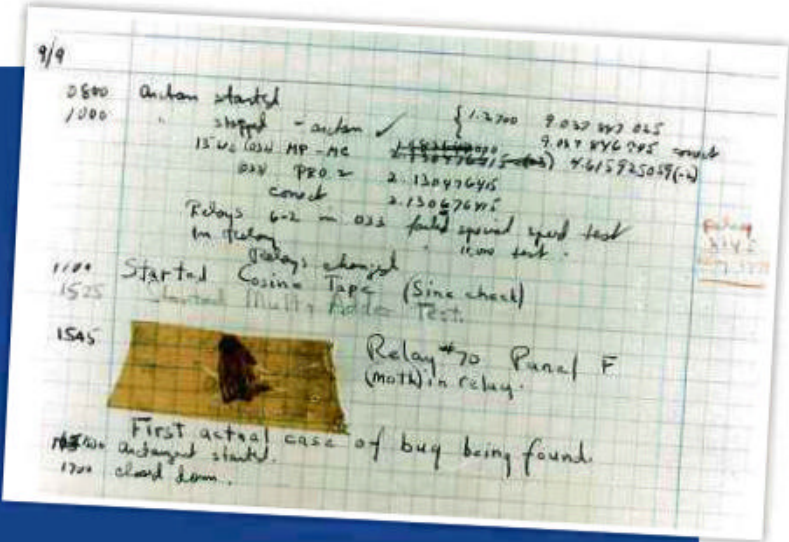 9/9
0800 antan started
1000 " stopped - antan ✓ { 1.2700 9.037 847 025
9.037 846 795 correct
13"uc (032) MP - MC 2.130476415 (-3) 4.615925059(-2)
033 PRO 2 2.130476415
correct 2.130676415
Relays 6-2 in 033 failed special speed test
In relay " 11.000 test.
Relays changed
1100 Started Cosine Tape (Sine check)
1525 Started Multi Adder Test.
1545 Relay #70 Panel F
(moth) in relay.
First actual case of bug being found.
antangent started.
1700 closed down.
Relay